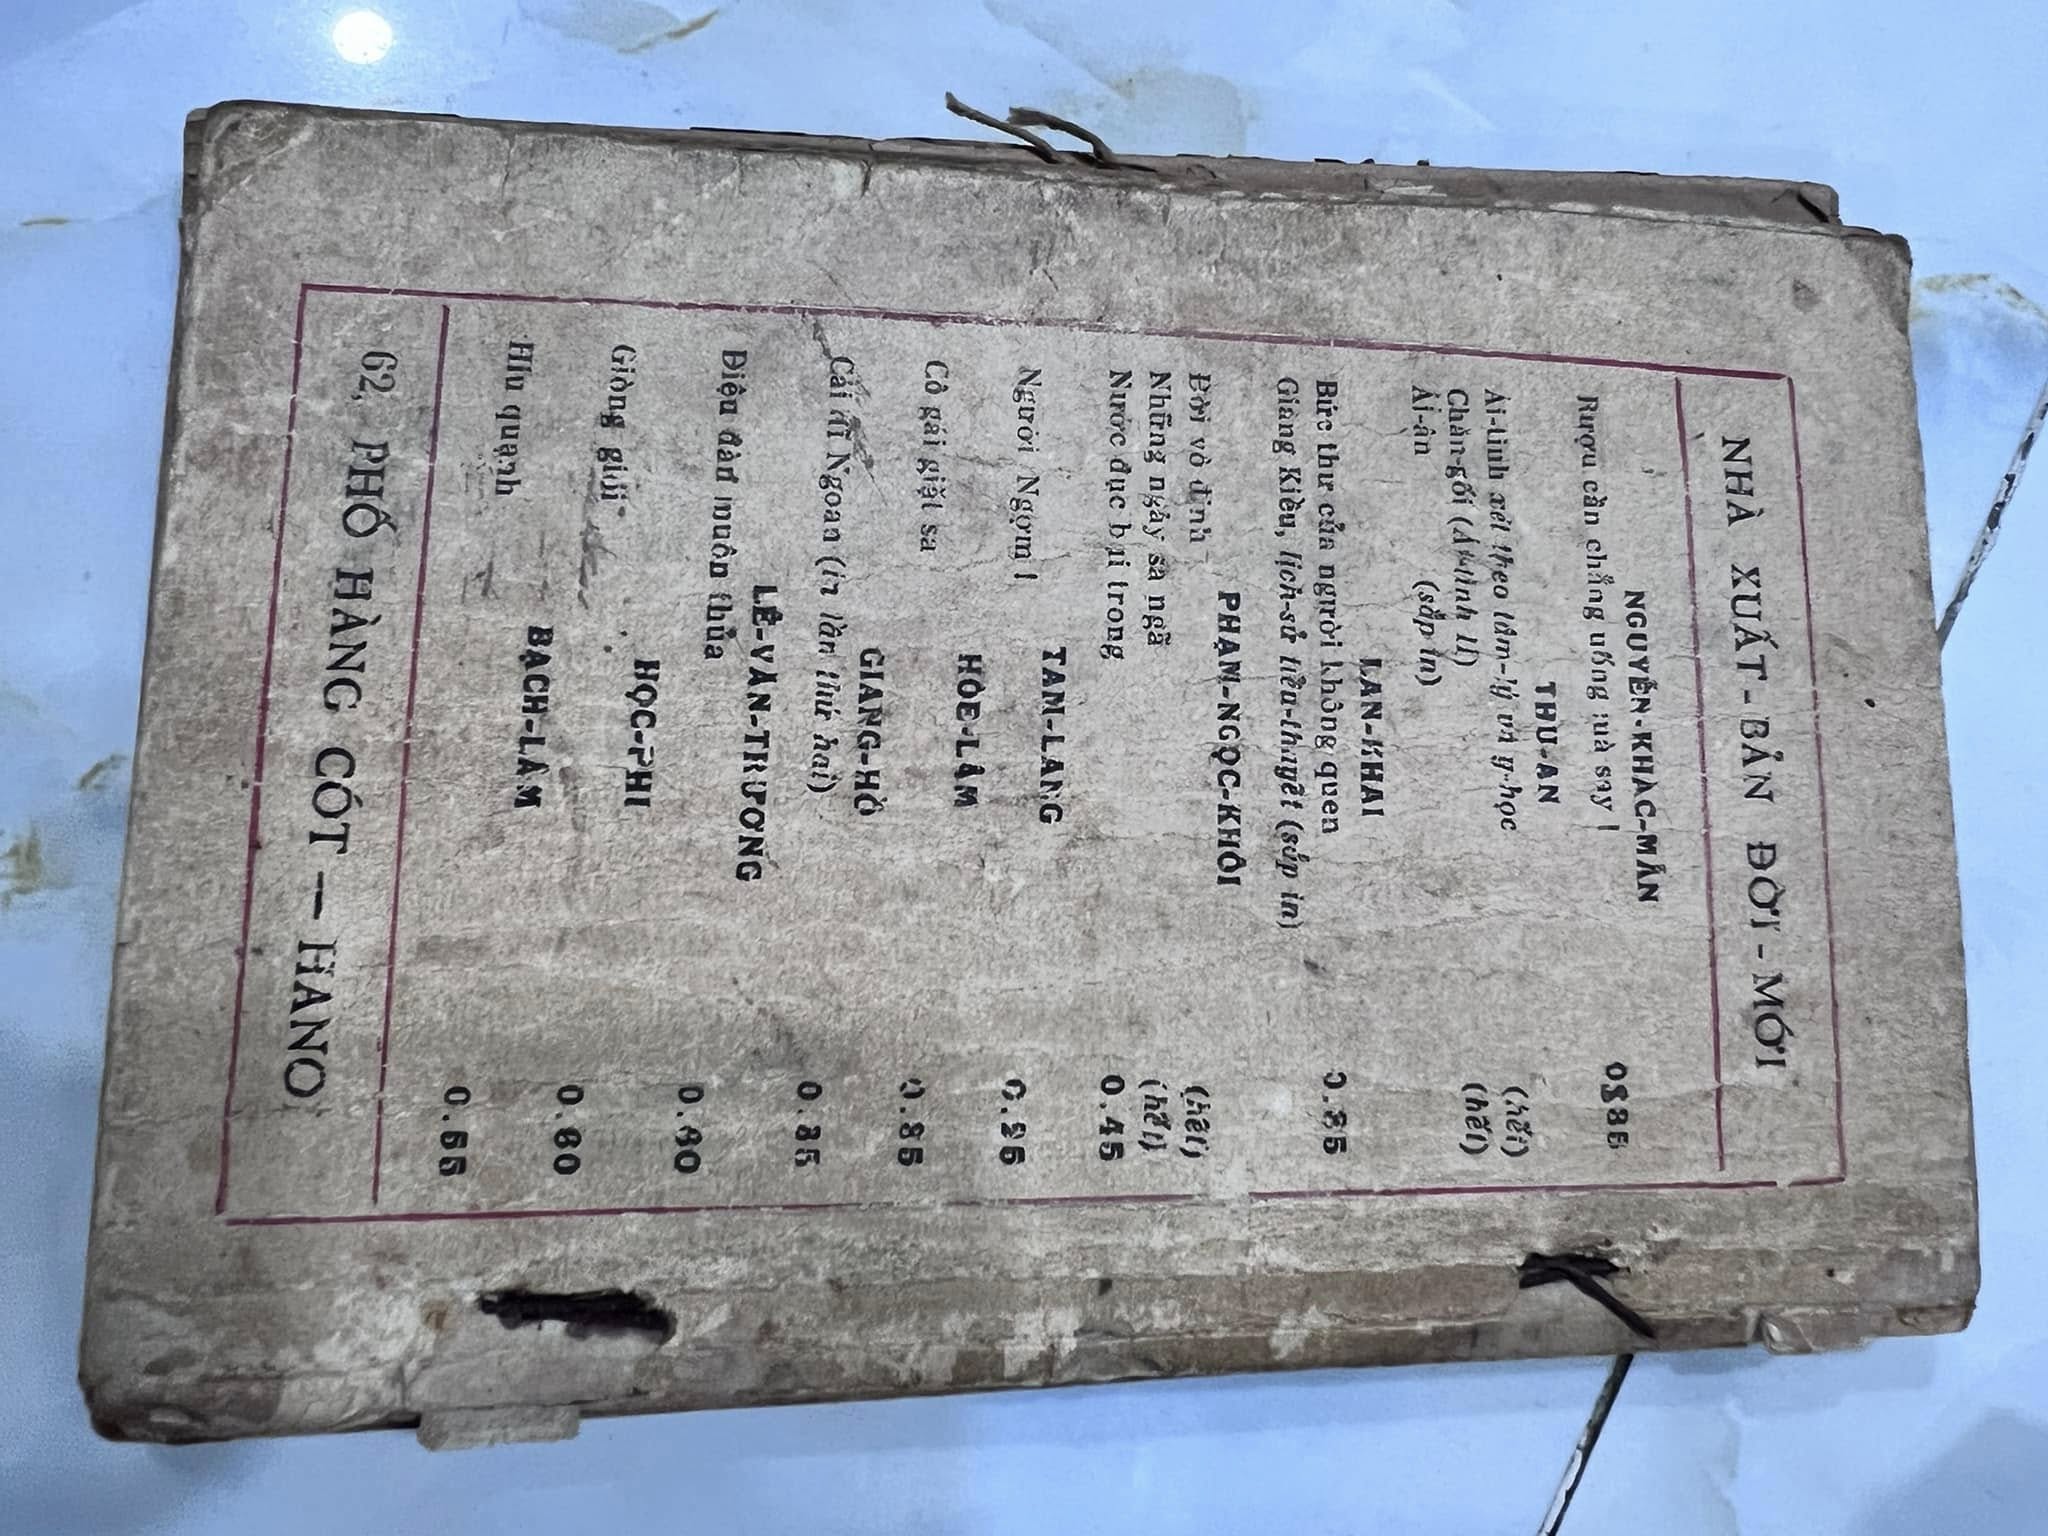 NHÀ XUẤT-BẢN ĐỜI-MỚI
NGUYỄN-KHẮC-MẪN
Rượu cần chẳng uống mà say ! 0$35
THU-AN
Ái-tình xét theo tâm-lý và y-học (hết)
Chăn-gối (Ái-tình II) (hết)
Ái-ân (sắp in)
LAN-KHAI
Bức thư của người không quen 0.35
Giàng Kiều, lịch-sử tiểu-thuyết (sắp in)
PHẠM-NGỌC-KHÔI
Đời vô định (hết)
Những ngày sa ngã (hết)
Nước đục bụi trong 0.45
TAM-LANG
Người Ngợm ! 0.25
HÒE-LÂM
Cô gái giặt sa 0.35
GIANG-HỒ
Cái hĩ Ngoan (in lần thứ hai) 0.35
LÊ-VĂN-TRƯƠNG
Điệu đàn muôn thủa 0.80
HỌC-PHI
Giòng giõi 0.80
BẠCH-LÂM
Hiu quạnh 0.55
62, PHỐ HÀNG CÓT — HANO